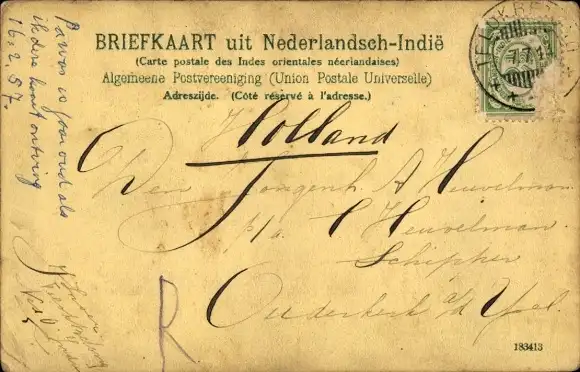 BRIEFKAART uit Nederlandsch-Indië
(Carte postale des Indes orientales néerlandaises)
Algemeene Postvereeniging (Union Postale Universelle)
Adreszijde. (Côté réservé à l'adresse.)
Holland
Den Jongenh. A Heuvelman
p/a. C Heuvelman
Schipper
Ouderkerk a/d Yssel.
R
183413
Pa was 10 jaar oud als
ik deze kaart ontving
16.2.57.
TELOKBETONG